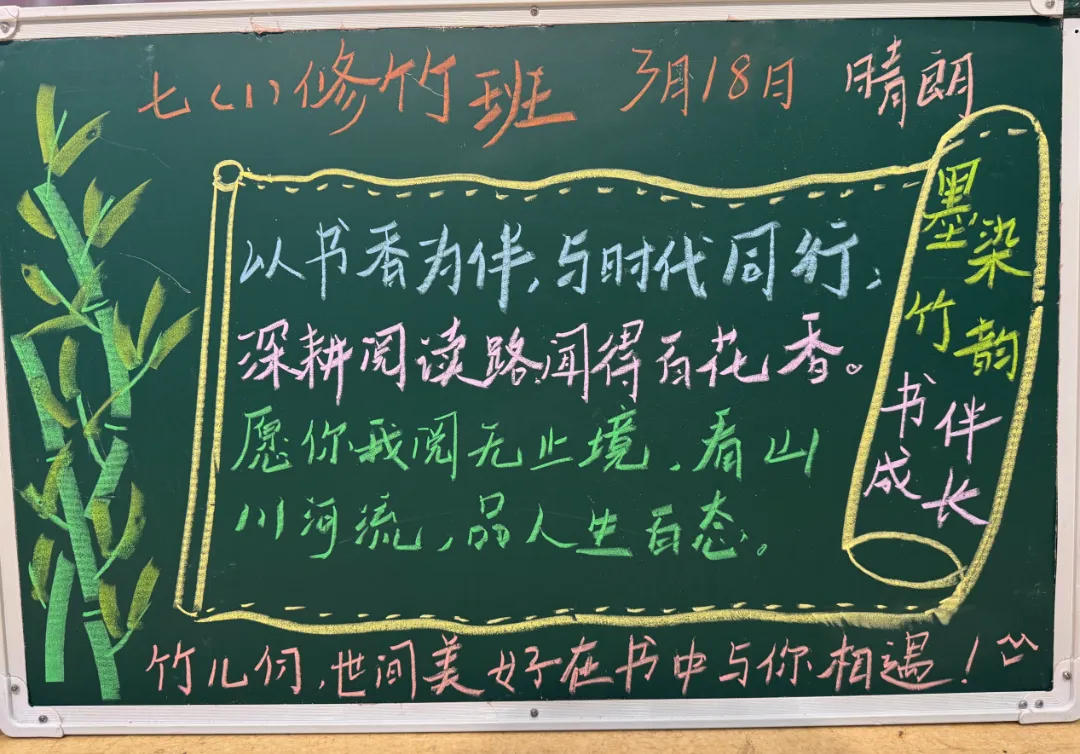 七（1）修竹班 3月18日 晴朗
以书香为伴，与时代同行；
深耕阅读路，闻得百花香。
愿你我阅无止境，看山
川河流，品人生百态。
墨染竹韵
书伴成长
竹儿们，世间美好在书中与你相遇！